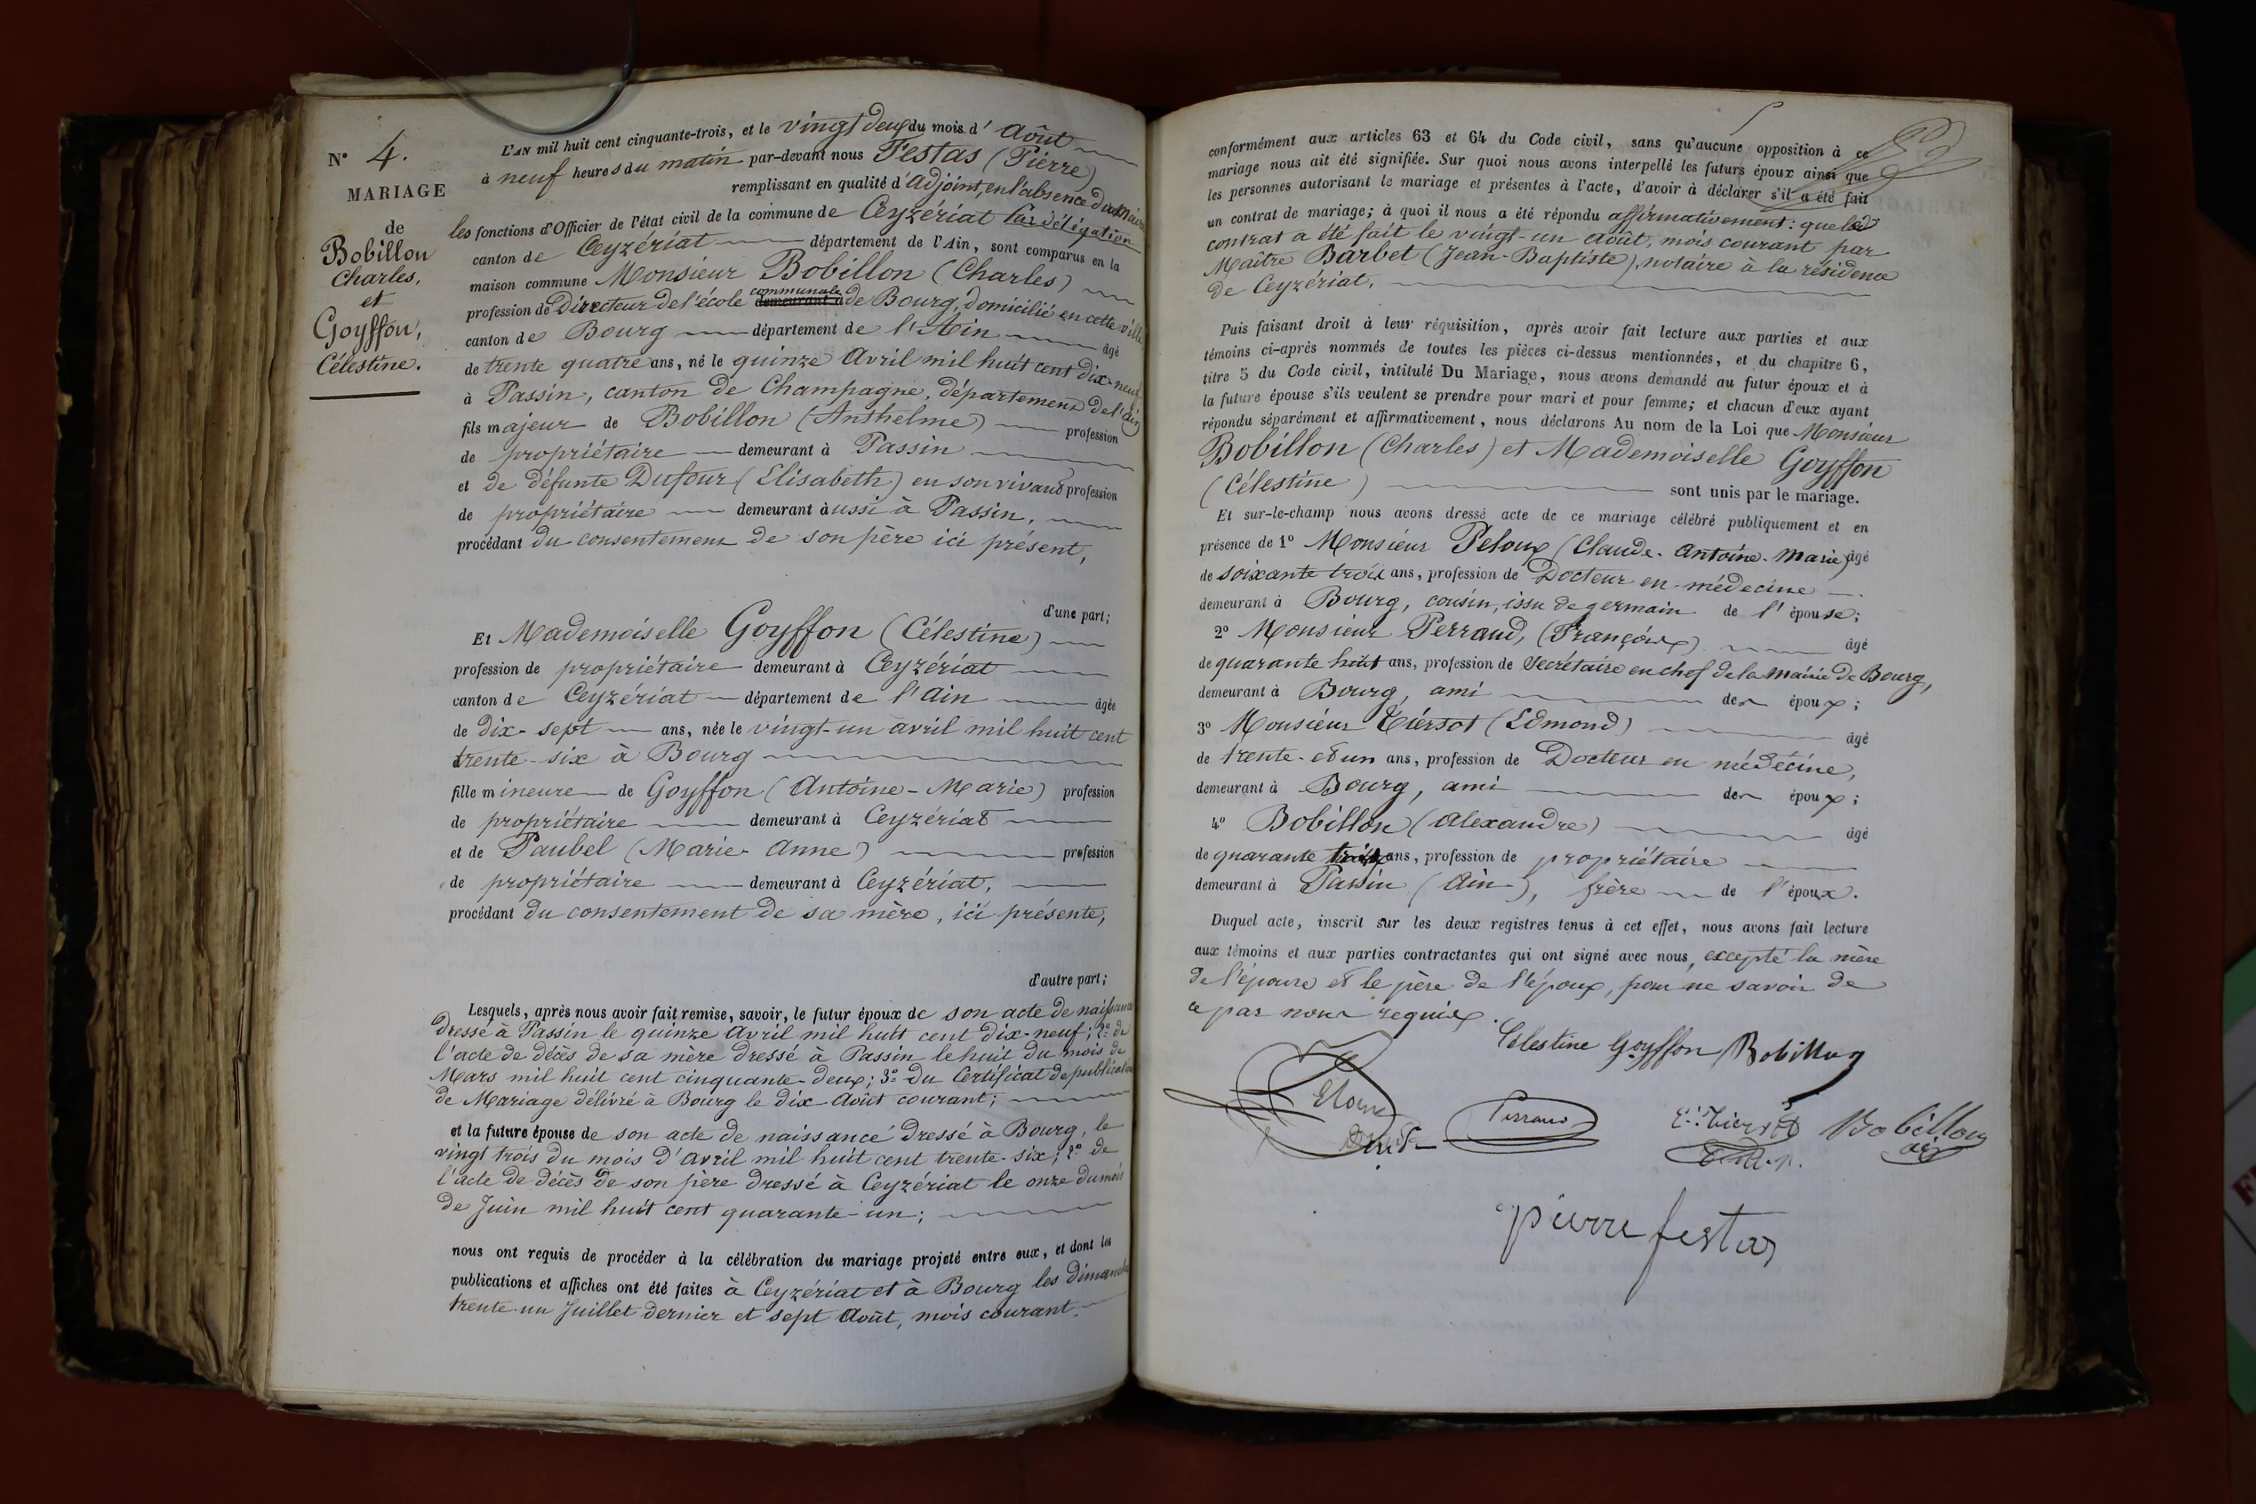 N° 4.
MARIAGE
de
Bobillon
Charles,
et
Goyffon,
Célestine.
L'AN mil huit cent cinquante-trois, et le vingt deux du mois d' Août
à neuf heures du matin par-devant nous Festas (Pierre)
remplissant en qualité d'adjoint, en l'absence du Maire
les fonctions d'Officier de l'état civil de la commune de Ceyzériat Par délégation
canton de Ceyzériat département de l'Ain, sont comparus en la
maison commune Monsieur Bobillon (Charles)
profession de Directeur de l'école communale de Bourg, domicilié en cette ville
canton de Bourg département de l'Ain âgé
de trente quatre ans, né le quinze Avril mil huit cent dix-neuf
à Passin, canton de Champagne, département de l'Ain
fils majeur de Bobillon (Anthelme) profession
de propriétaire demeurant à Passin
et de défunte Dufour (Elisabeth) en son vivant profession
de propriétaire demeurant aussi à Passin,
procédant du consentement de son père ici présent,
d'une part;
Et Mademoiselle Goyffon (Célestine)
profession de propriétaire demeurant à Ceyzériat
canton de Ceyzériat département de l'Ain âgée
de dix-sept ans, née le vingt-un avril mil huit cent
trente-six à Bourg
fille mineure de Goyffon (Antoine-Marie) profession
de propriétaire demeurant à Ceyzériat
et de Paubel (Marie-Anne) profession
de propriétaire demeurant à Ceyzériat,
procédant du consentement de sa mère, ici présente,
d'autre part;
Lesquels, après nous avoir fait remise, savoir, le futur époux de son acte de naissance
dressé à Passin le quinze Avril mil huit cent dix-neuf; 2° de
l'acte de décès de sa mère dressé à Passin le huit du mois de
Mars mil huit cent cinquante-deux; 3° du Certificat de publication
de Mariage délivré à Bourg le dix Août courant;
et la future épouse de son acte de naissance dressé à Bourg, le
vingt trois du mois d'avril mil huit cent trente-six; 2° de
l'acte de décès de son père dressé à Ceyzériat le onze du mois
de Juin mil huit cent quarante-un;
nous ont requis de procéder à la célébration du mariage projeté entre eux, et dont les
publications et affiches ont été faites à Ceyzériat et à Bourg les dimanches
trente-un Juillet dernier et sept Août, mois courant.
conformément aux articles 63 et 64 du Code civil, sans qu'aucune opposition à ce
mariage nous ait été signifiée. Sur quoi nous avons interpellé les futurs époux ainsi que
les personnes autorisant le mariage et présentes à l'acte, d'avoir à déclarer s'il a été fait
un contrat de mariage; à quoi il nous a été répondu affirmativement: que led.
contrat a été fait le vingt-un août, mois courant par
Maître Barbet (Jean-Baptiste), notaire à la résidence
de Ceyzériat.
Puis faisant droit à leur réquisition, après avoir fait lecture aux parties et aux
témoins ci-après nommés de toutes les pièces ci-dessus mentionnées, et du chapitre 6,
titre 5 du Code civil, intitulé Du Mariage, nous avons demandé au futur époux et à
la future épouse s'ils veulent se prendre pour mari et pour femme; et chacun d'eux ayant
répondu séparément et affirmativement, nous déclarons Au nom de la Loi que Monsieur
Bobillon (Charles) et Mademoiselle Goyffon
(Célestine) sont unis par le mariage.
Et sur-le-champ nous avons dressé acte de ce mariage célébré publiquement et en
présence de 1° Monsieur Peloux (Claude-Antoine-Marie) âgé
de soixante trois ans, profession de Docteur en médecine
demeurant à Bourg, cousin, issu de germain de l'épouse;
2° Monsieur Perraud, (François) âgé
de quarante huit ans, profession de Secrétaire en chef de la Mairie de Bourg,
demeurant à Bourg, ami des époux;
3° Monsieur Tiersot (Edmond) âgé
de trente-et un ans, profession de Docteur en médecine,
demeurant à Bourg, ami des époux;
4° Bobillon (Alexandre) âgé
de quarante ans, profession de propriétaire
demeurant à Passin (Ain), frère de l'époux.
Duquel acte, inscrit sur les deux registres tenus à cet effet, nous avons fait lecture
aux témoins et aux parties contractantes qui ont signé avec nous, excepté la mère
de l'épouse et le père de l'époux, pour ne savoir de
ce par nous requis.
Célestine Goyffon Bobillon
Perraud Tiersot Bobillon
pierre festas